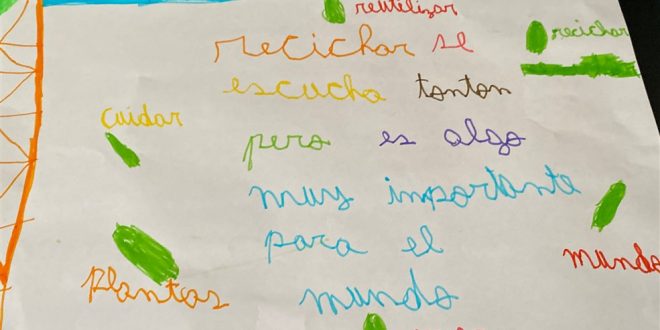 reutilizar
recichar se
recichar
escucha tonton
cuidar
pero es algo
muy importante
para el
mundo
plantas
mundo